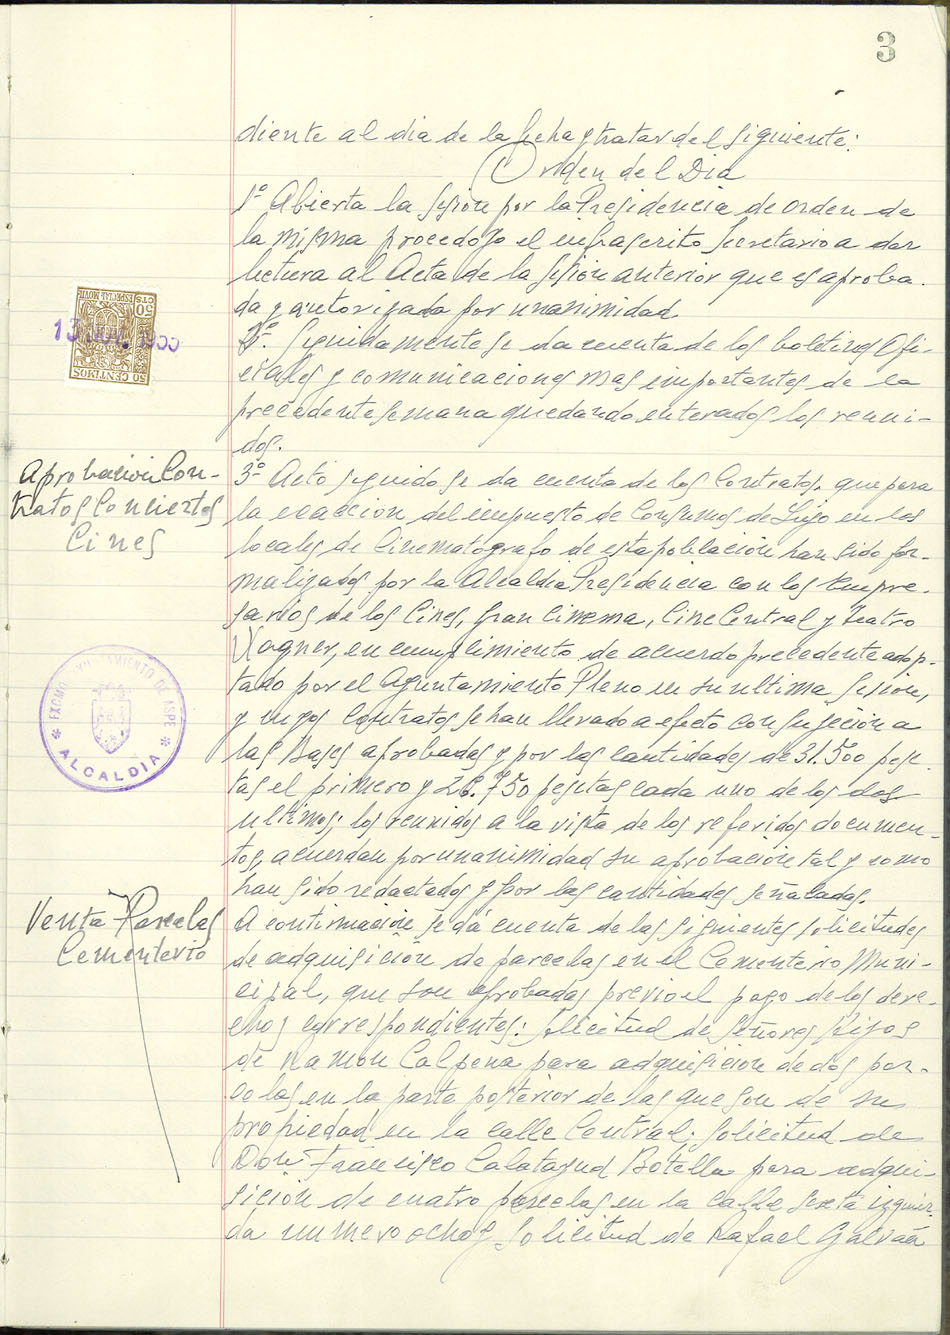 3
diente al dia de la fecha y tratar del siguiente:
Orden del Dia
1º Abierta la sesión por la Presidencia de orden de
la misma procedojo el infrascrito Secretario a dar
lectura al Acta de la sesión anterior que es aproba-
da y autorizada por unanimidad
2º. Seguidamente se da cuenta de los boletines Ofi-
ciales y comunicaciones mas importantes de la
precedente semana quedando enterados los reuni-
dos.
Aprobación Con-
tratos Conciertos
Cines
3º Acto seguido se da cuenta de los Contratos, que para
la exacción del impuesto de Consumos de Lujo en los
locales de Cinematógrafo de esta población han sido for-
malizados por la Alcaldia Presidencia con los Empre-
sarios de los Cines, Gran Cinema, Cine Central y Teatro
Wagner, en cumplimiento de acuerdo precedente adop-
tado por el Ayuntamiento Pleno en su ultima sesión,
y cuyos contratos se han llevado a efecto con sujeción a
las Bases aprobadas y por las cantidades de 31.500 pese-
tas el primero y 28.750 pesetas cada uno de los dos
ultimos; los reunidos a la vista de los referidos documen-
tos, acuerdan por unanimidad su aprobación tal y como
han sido redactados y por las cantidades señaladas.
Venta Parcelas
Cementerio
A continuación se dá cuenta de las siguientes solicitudes
de adquisición de parcelas en el Cementerio Muni-
cipal, que son aprobadas previo el pago de los dere-
chos correspondientes: Solicitud de Señores Hijos
de Ramon Calpena para adquisición de dos par-
celas en la parte posterior de las que son de su
propiedad en la calle Central; Solicitud de
Don Francisco Calatayud Botella para adqui-
sición de cuatro parcelas en la calle sexta izquier-
da numero ocho y Solicitud de Rafael Galván
50 CENTIMOS
ESPECIAL MOVIL
50 CTS
EXCMO. AYUNTAMIENTO DE ASPE
ALCALDIA